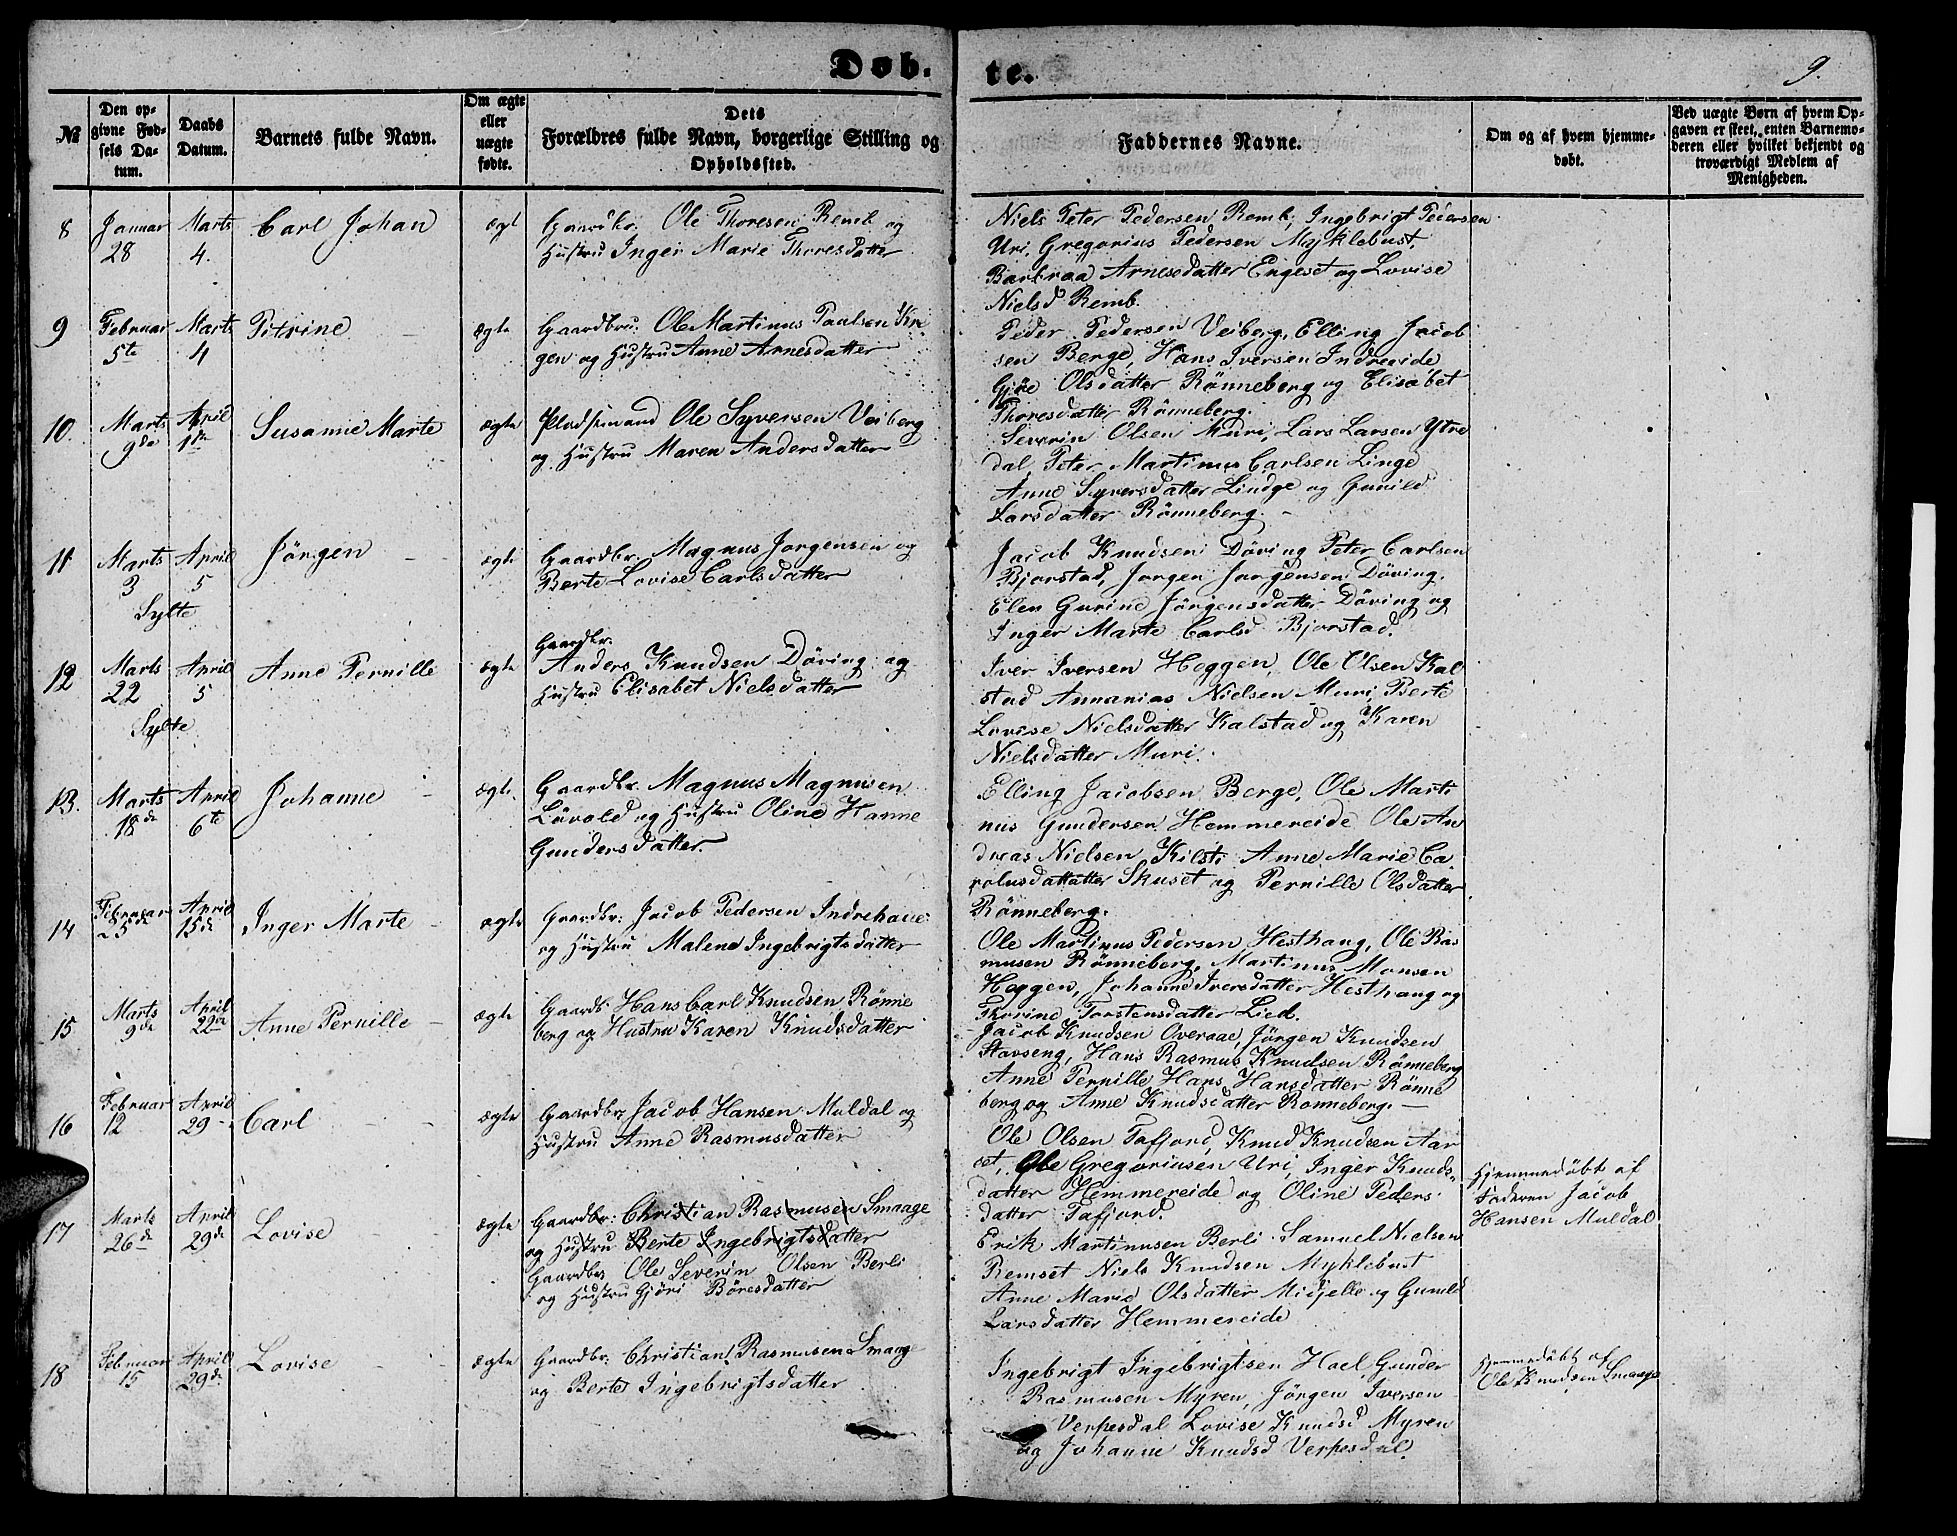 Døb.
te.
9.
№
Den op-
givne Fød-
sels Da-
tum.
Daabs
Datum.
Barnets fulde Navn.
Om ægte
eller
uægte
fødte.
Dets
Forældres fulde Navn, borgerlige Stilling og
Opholdssted.
Faddernes Navne.
Om og af hvem hjemme-
døbt.
Ved uægte Børn af hvem Op-
gaven er skeet, enten Barnemo-
deren eller hvilket bekjendt og
troværdigt Medlem af
Menigheden.
8
Januar
28
Marts
4.
Carl Johan
ægt
Gaardbr. Ole Thoresen Remb og
Hustru Inger Marie Thoresdatter
Niels Peter Pedersen Remb, Ingebrigt Pedersen
Uri, Gregorius Pedersen Myklebust,
Barbraa Arnesdatter Engeset og Lovise
Nielsd Remb.
9
Februar
5te
Marts
4
Petrine
ægte
Gaardbru. Ole Martinus Paulsen
gen og Hustru Anne Arnesdatter
Peder Pedersen Veiberg, Elling Jacob
sen Berge, Hans Iversen Indreeide
Gjøe Olsdatter Rönneberg og Elisabet
Thoresdatter Rönneberg.
10.
Marts
9de
April
1ste
Susanne Marte
ægte
Pladsmand Ole Syversen Veiberg
og Hustru Maren Andersdatter
Severin Olsen Muri, Lars Larsen Ytre
dal, Peter Martinus Carlsen Linge
Anne Syversdatter Lindge og Gunild
Larsdatter Rönneberg.
11
Marts
3
Sylte
April
5
Jörgen
ægte
Gaardbr. Magnus Jorgensen og
Berte Lovise Carlsdatter
Jacob Knudsen Döving Peter Carlsen
Bjorstad, Jorgen Jorgensen Döving.
Elen Gurine Jörgensdatter Döving og
Inger Marte Carlsd Bjorstad.
12
Marts
22
Sylte
April
5
Anne Pernille
ægte
Gaardbr.
Anders Knudsen Döving og
Hustru Elisabet Nielsdatter
Iver Iversen Heggen, Ole Olsen Kal
stad Annanias Nielsen Muri, Berte
Lovise Nielsdatter Kalstad og Karen
Nielsdatter Muri.
13.
Marts
18de
April
6te
Johanne
ægte
Gaardbr. Magnus Magnusen
Lövold og Hustru Oline Hanne
Gundersdatter.
Elling Jacobsen Berge, Ole Marti
nus Gundersen Hemmereide Ole An
dreas Nielsen Kilsti Anne Marie Ca
rolusdattatter Skuset og Pernille Olsdatter
Rönneberg.
14
Februar
25de
April
15de
Inger Marte
ægte
Gaardbr: Jacob Pedersen
og Hustru Malene Ingebrigtsdatter
Ole Martinus Pedersen Hesthaug, Ole Ras
musen Rönneberg, Martinus Monsen
Heggen, Johanne Iversdatter Hesthaug og
Thorine Torstensdatter Lied.
15
Marts
9de
April
22de
Anne Pernille
ægte
Gaardb Hans Carl Knudsen Rönne
berg og Hustru Karen Knudsdatter
Jacob Knudsen Overaae, Jörgen Knudsen
Stavseng, Hans Rasmus Knudsen Rönneberg
Anne Pernille Hans Hansdatter Rönne
berg og Anne Knudsdatter Ronneberg.
16
Februar
12
April
29
Carl
ægte
Gaardbr Jacob Hansen Muldal og
Hustru Anne Rasmusdatter
Ole Olsen Tafjord, Knud Knudsen Aar
set, Ole Gregoriusen Uri, Inger Knuds-
datter Hemmereide og Oline Peders
datter Tafjord.
Hjemmedöbt af
Faderen Jacob
Hansen Muldal
17
Marts
26de
April
29de
Lovise
ægte
Gaardbr: Christian Rasmusen Smaage
og Hustru Berte Ingebrigtsdatter
Gaardbr Ole Severin Olsen Berli
og Hustru Gjöri Böresdatter
Erik Martinusen Berli Samuel Nielsen
Remset Niels Knudsen Myklebust
Anne Marie Olsdatter Midjelle og Gunild
Larsdatter Hemmereide
18
Februar
15
April
29de
Lovise
ægte
Gaardbr. Christian Rasmusen Smaage
og Berte Ingebrigtsdatter
Ingebrigt Ingebrigtsen Hoel Gunder
Rasmusen Myren, Jörgen Iversen
Verpesdal Lovise Knudsd Myren
og Johanne Knudsd Verpesdal.
Hjemmedöbt af
Ole Knudsen Smaage